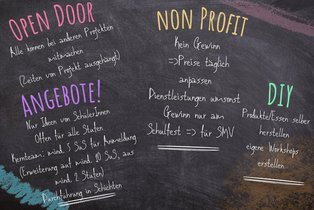 OPEN DOOR
Alle können bei anderen Projekten
mitmachen
(Zeiten von Projekt ausgehängt)
ANGEBOTE!
Nur Ideen von SchülerInnen
Offen für alle Stufen
Kernteam: mind. 5 SuS für Anmeldung
(Erweiterung auf mind. 10 SuS, aus
mind. 2 Stufen)
Durchführung in Schichten
NON PROFIT
Kein Gewinn
=>Preise täglich
anpassen
Dienstleistungen umsonst
Gewinn nur am
Schulfest => für SMV
DIY
Produkte/Essen selber
herstellen
eigene Workshops
erstellen